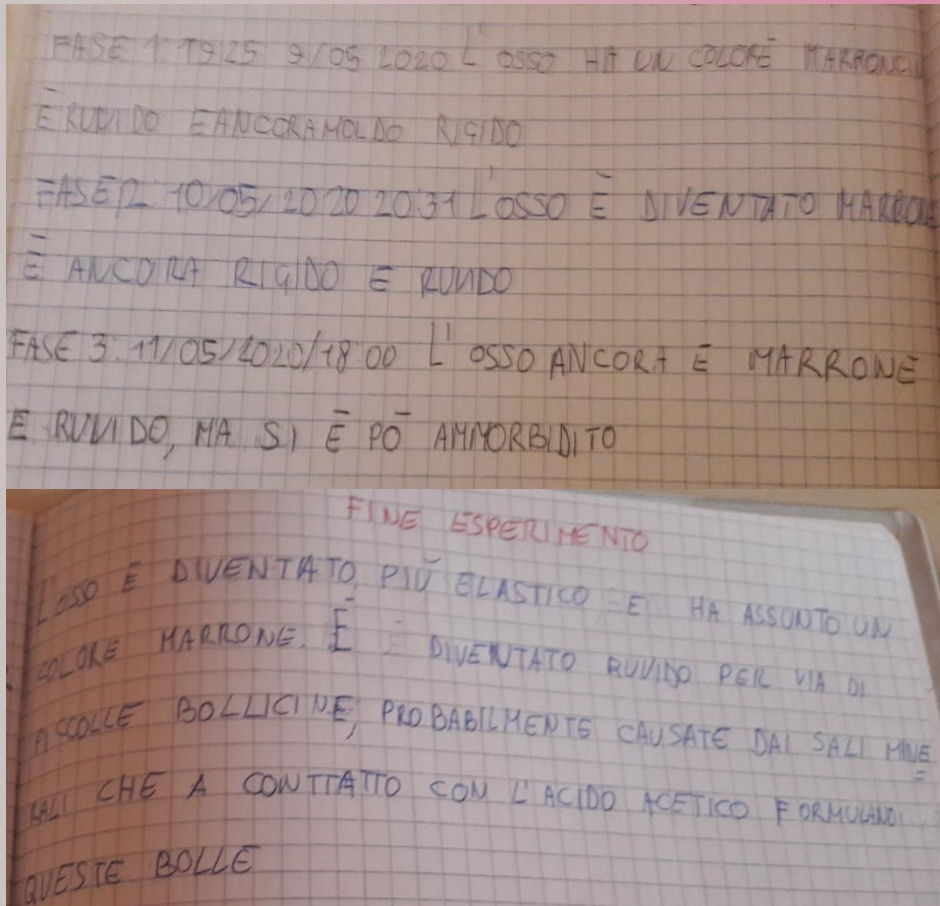 FASE 1: 19:25 9/05 2020 L'OSSO HA UN COLORE MARRONCI
È RUVIDO E ANCORA MOLDO RIGIDO
FASE 2 10/05/2020 20:31 L'OSSO È DIVENTATO MARRONE
È ANCORA RIGIDO E RUVIDO
FASE 3: 11/05/2020/18:00 L'OSSO ANCORA E MARRONE
E RUVIDO, MA SI È PÒ AMMORBIDITO
FINE ESPERIMENTO
L'OSSO È DIVENTATO PIÙ ELASTICO E HA ASSUNTO UN
COLORE MARRONE. È DIVENTATO RUVIDO PER VIA DI
PISCOLLE BOLLICINE, PROBABILMENTE CAUSATE DAI SALI MINE=
RALI CHE A CONTTATTO CON L'ACIDO ACETICO FORMULANO
QUESTE BOLLE